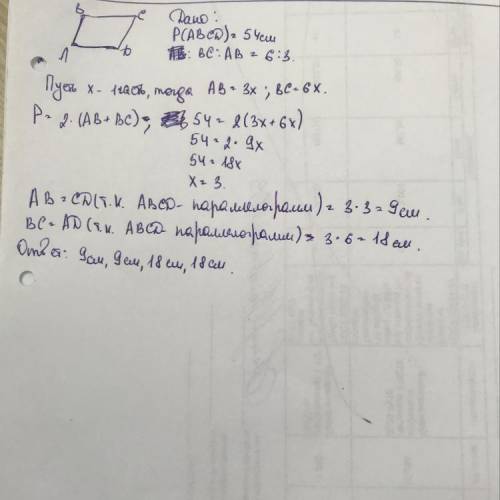 B C
A D
Дано:
P(ABCD)= 54см
BC:AB = 6:3.
Пусть x- часть, тогда AB=3x; BC=6x.
P= 2·(AB+BC)=; 54=2(3x+6x)
54=2·9x
54=18x
x=3.
AB=CD(т.к. ABCD- параллелограмм)=3·3=9см.
BC=AD(т.к. ABCD- параллелограмм)=3·6=18см.
Ответ: 9см, 9см, 18см, 18см.